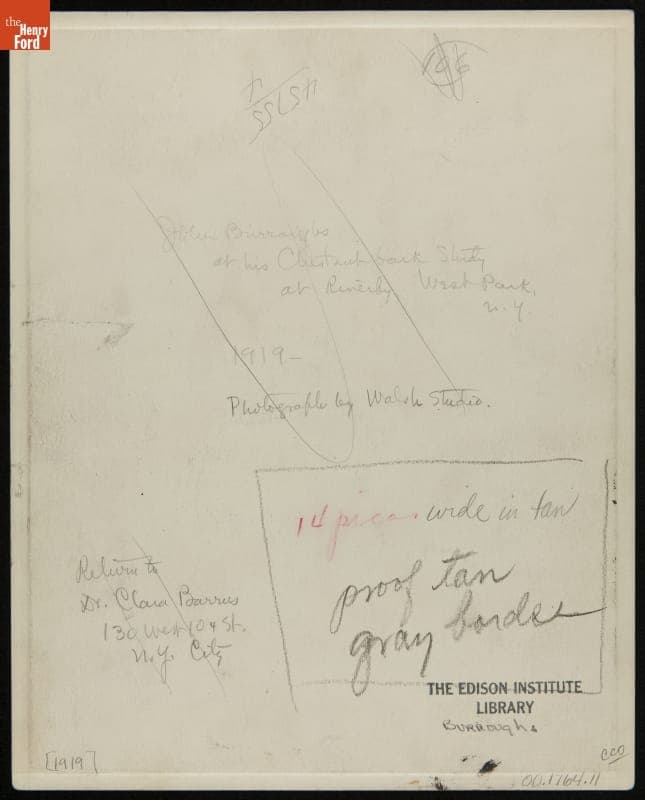 the
Henry
Ford
96
45755
4
John Burroughs
at his Chestnut bark Study
at Riverby West Park,
N.Y.
1919-
Photograph by Walsh Studio.
14 picas wide in tan
proof tan
gray border
Return to
Dr. Clara Barrus
130 West 104 St.
N.Y. City
THE EDISON INSTITUTE
LIBRARY
BURROUGHS
[1919]
CCO
00.1764.11